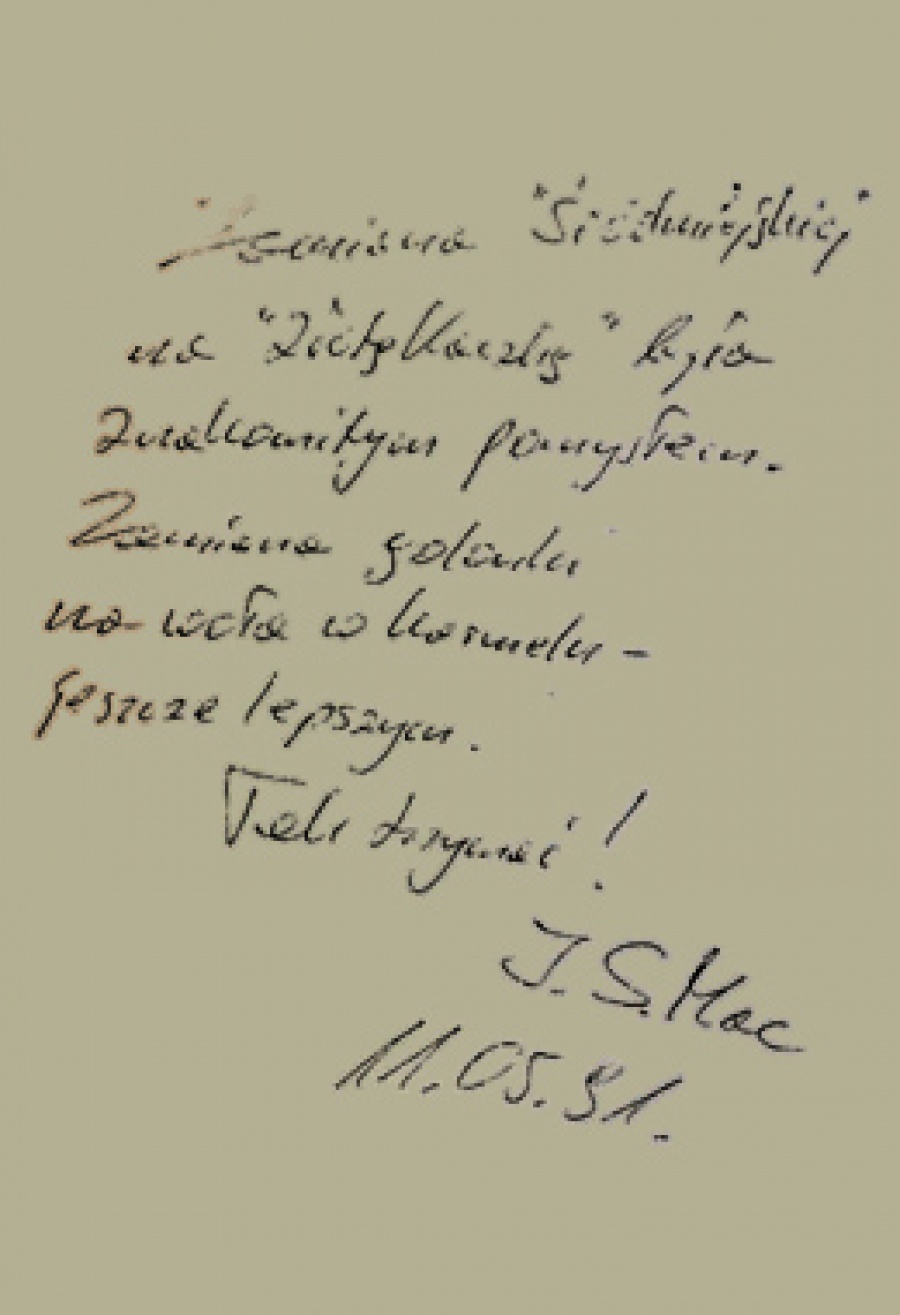 Zamiana "Śródmiejskiej"
na "Złotą Kaczkę" była
znakomitym pomysłem.
Zamiana golonki
na woła w karmelu -
jeszcze lepszym.
Tak trzymać!
J. S. Mac
11.05.91.